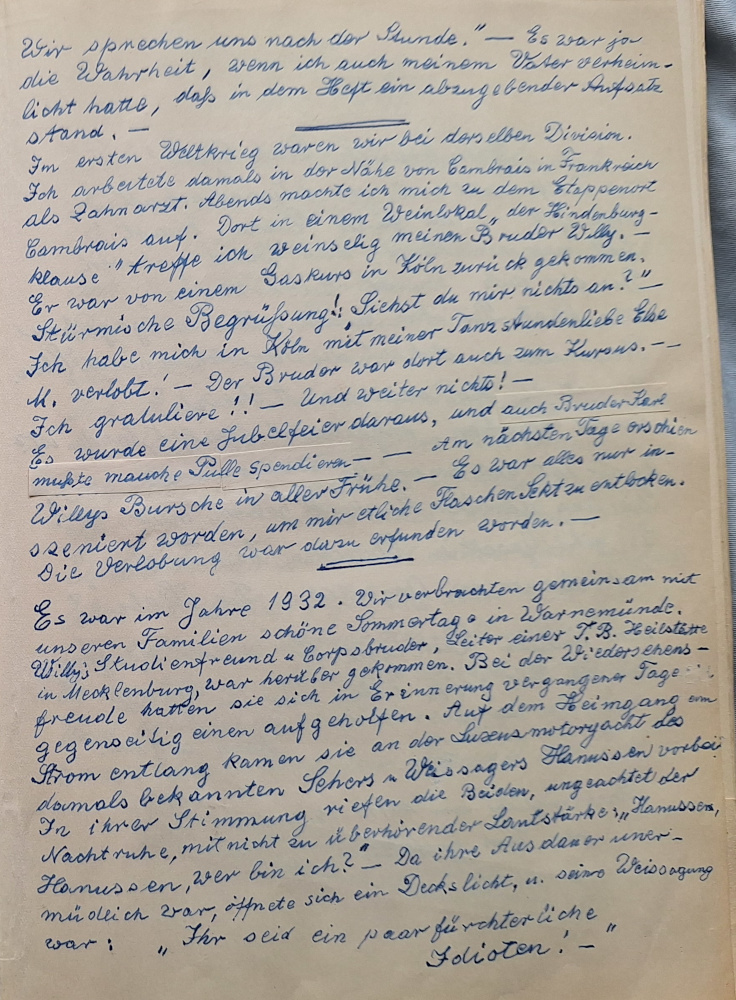 Wir sprechen uns nach der Stunde." — Es war ja
die Wahrheit, wenn ich auch meinem Vater verheim-
licht hatte, daß in dem Heft ein abzugebender Aufsatz
stand. —
Im ersten Weltkrieg waren wir bei derselben Division.
Ich arbeitete damals in der Nähe von Cambrais in Frankreich
als Zahnarzt. Abends machte ich mich zu dem Etappenort
Cambrais auf. Dort in einem Weinlokal „der Hindenburg-
klause" treffe ich weinselig meinen Bruder Willy. —
Er war von einem Gaskurs in Köln zurück gekommen.
Stürmische Begrüßung!: Siehst du mir nichts an?" —
Ich habe mich in Köln mit meiner Tanzstundenliebe Else
M. verlobt! — Der Bruder war dort auch zum Kursus. — —
Ich gratuliere!! — Und weiter nichts! —
Es wurde eine Jubelfeier daraus, und auch Bruder Karl
mußte manche Pulle spendieren — — Am nächsten Tage erschien
Willys Bursche in aller Frühe. — Es war alles nur in-
szeniert worden, um mir etliche Flaschen Sekt zu entlocken.
Die Verlobung war dazu erfunden worden. —
Es war im Jahre 1932. Wir verbrachten gemeinsam mit
unseren Familien schöne Sommertage in Warnemünde.
Willy's Studienfreund u Corpsbruder, Leiter einer T.B. Heilstätte
in Mecklenburg, war herüber gekommen. Bei der Wiedersehens-
freude hatten sie sich in Erinnerung vergangener Tage
gegenseitig einen aufgeholfen. Auf dem Heimgang am
Strom entlang kamen sie an der Luxusmotoryacht des
damals bekannten Sehers u Weissagers Hanussen vorbei
In ihrer Stimmung riefen die Beiden, ungeachtet der
Nachtruhe, mit nicht zu überhörender Lautstärke: „Hanussen,
Hanussen, wer bin ich?" — Da ihre Ausdauer uner-
müdlich war, öffnete sich ein Deckslicht, u. seine Weissagung
war: „Ihr seid ein paar fürchterliche
Idioten! — "